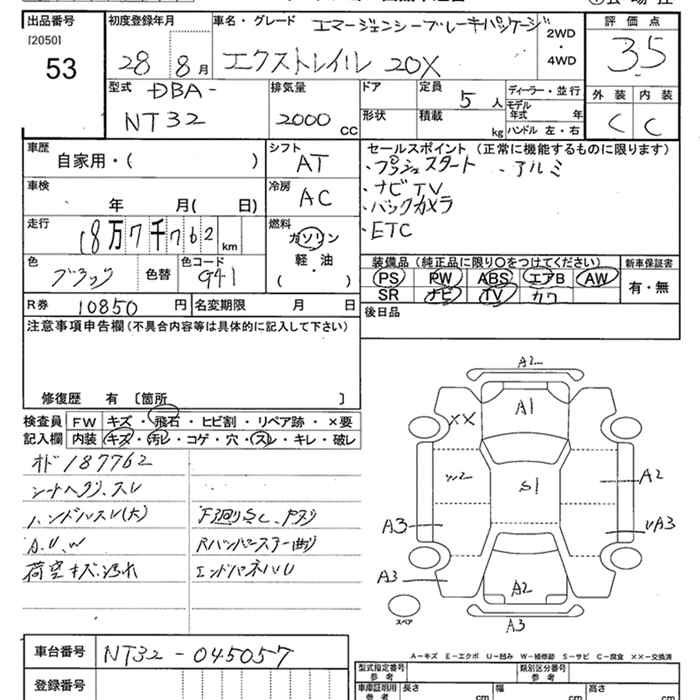 出品番号
[2050]
53
初度登録年月
28 8月
車名・グレード
エマージェンシーブレーキパッケージ
エクストレイル 20X
2WD
・
4WD
評価点
3.5
外装 内装
C C
型式
DBA-
NT32
排気量
2000 CC
ドア
形状
定員
5人
積載
kg
ディーラー・並行
モデル年式 年
ハンドル 左・右
車歴
自家用・( )
シフト
AT
セールスポイント (正常に機能するものに限ります)
・プッシュスタート ・アルミ
・ナビTV
・バックカメラ
・ETC
車検
年 月( 日)
冷房
AC
走行
18万7千762km
燃料
ガソリン
軽・油
( )
色
ブラック
色替
色コード
G41
装備品 (純正品に限り○をつけてください)
PS PW ABS エアB AW
SR ナビ TV カワ
新車保証書
有・無
R券 10850円
名変期限 月 日
後日品
注意事項申告欄 (不具合内容等は具体的に記入して下さい)
修復歴 有 [箇所 ]
検査員記入欄
FW キズ・飛石・ヒビ割・リペア跡・×要
内装 キズ・汚レ・コゲ・穴・スレ・キレ・破レ
オド187762
ハンドルスレ(大)
A.U.W
荷室キズ、汚れ
下廻りSC.
A2
A1
XX
S1
A2
A3
A3
A2
A3
スペア
A-キズ E-エクボ U-凹み W-補修跡 S-サビ C-腐食 ××-交換済
車台番号
NT32-045057
登録番号
型式指定番号
参考
類別区分番号
参考
車庫証明用
参考
長さ cm
幅 cm
高さ cm